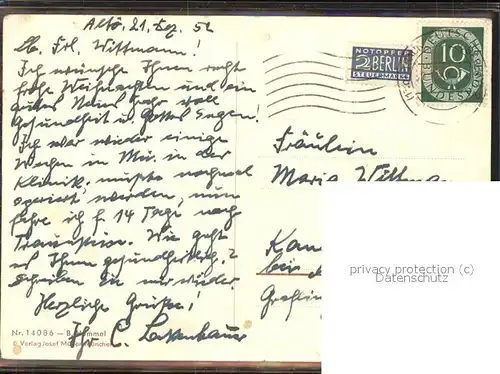 Altö. 21. Dez. 52
Lb. Frl. Wittmann!
Ich wünsche Ihnen recht
frohe Weihnachten und ein
gutes Neues Jahr voll
Gesundheit u. Gottes Segen!
Ich war wieder einige
Wochen in Mü. in der
Klinik; mußte nochmal
operiert werden, nun
fahre ich f. 14 Tage nach
Wie geht
es Ihnen gesundheitlich?
Schreiben Sie mir wieder.
Herzliche Grüße!
Ihr C.
Nr. 14086 — B. Hummel
© Verlag Josef Müller München
NOTOPFER
2 BERLIN
STEUERMARKE
DEUTSCHE BUNDESPOST
10
Fräulein
Maria
privacy protection (c)
Datenschutz
bei